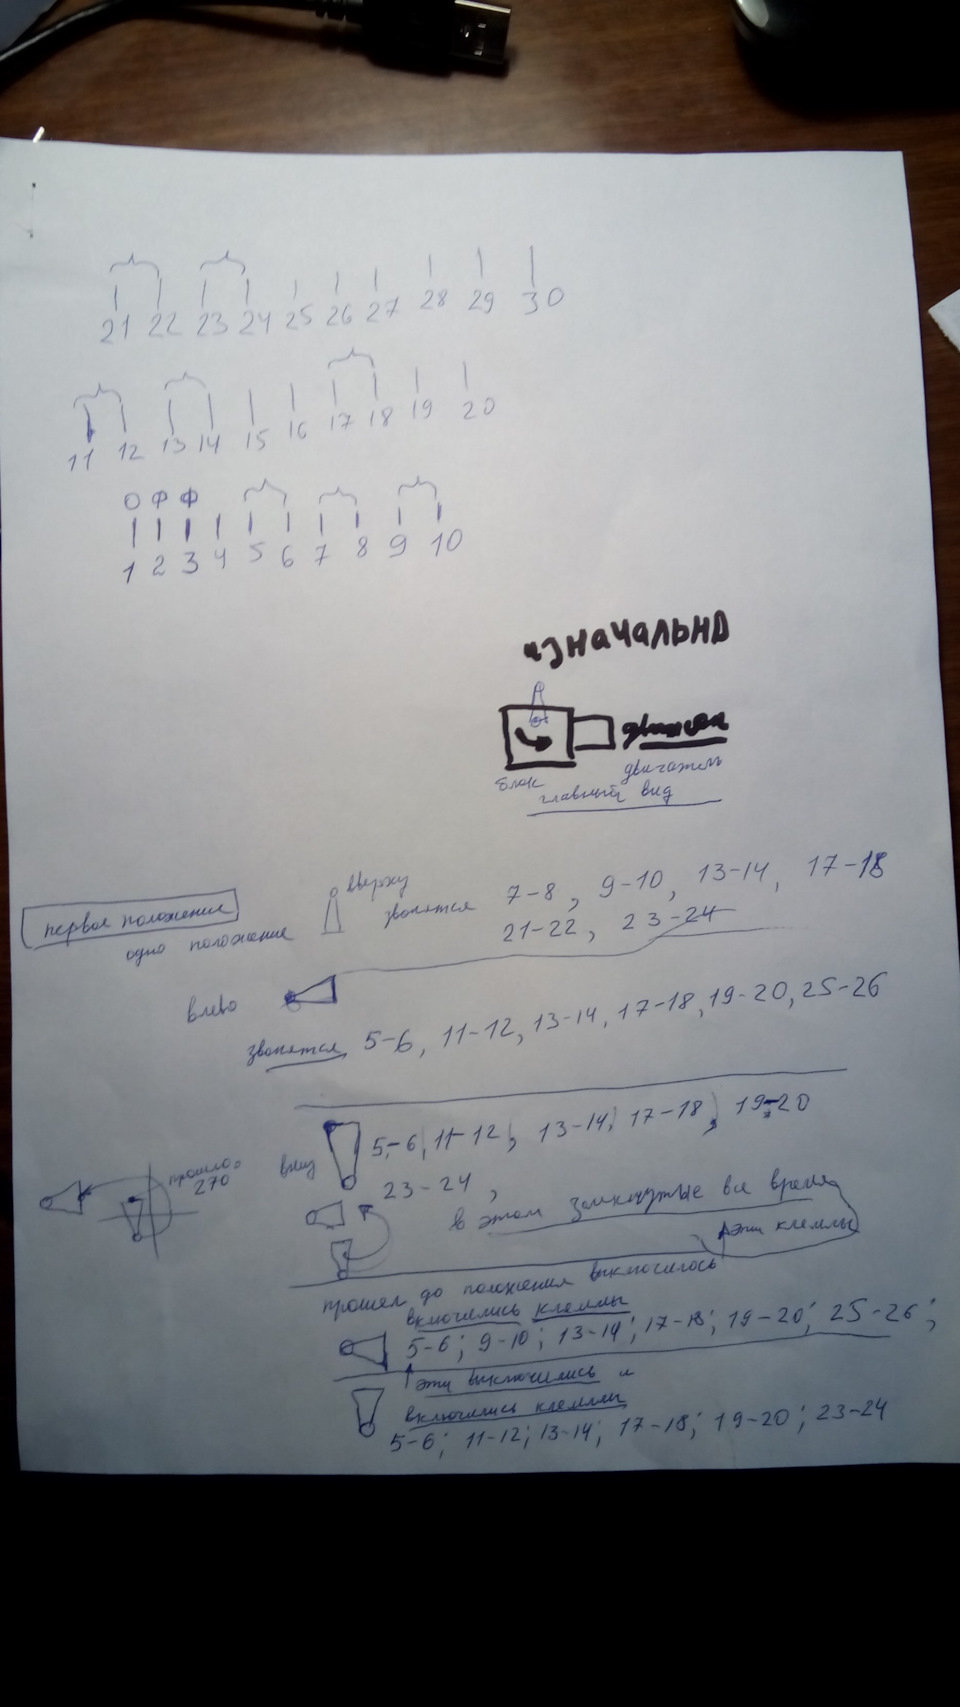 21 22 23 24 25 26 27 28 29 30
11 12 13 14 15 16 17 18 19 20
О Ф Ф
1 2 3 4 5 6 7 8 9 10
изначально
двигатель
блок
главный вид
первое положение
одно положение
вверху
звонятся 7-8, 9-10, 13-14, 17-18
21-22, 23-24
влево
звонятся 5-6, 11-12, 13-14, 17-18, 19-20, 25-26
вниз 5-6, 11-12, 13-14, 17-18, 19-20
23-24,
прошло
270
в этом замкнутые все время
эти клеммы
прошел до положения выключилось
включились клеммы
5-6; 9-10; 13-14; 17-18; 19-20; 25-26;
эти выключились и
включились клеммы
5-6; 11-12; 13-14; 17-18; 19-20; 23-24